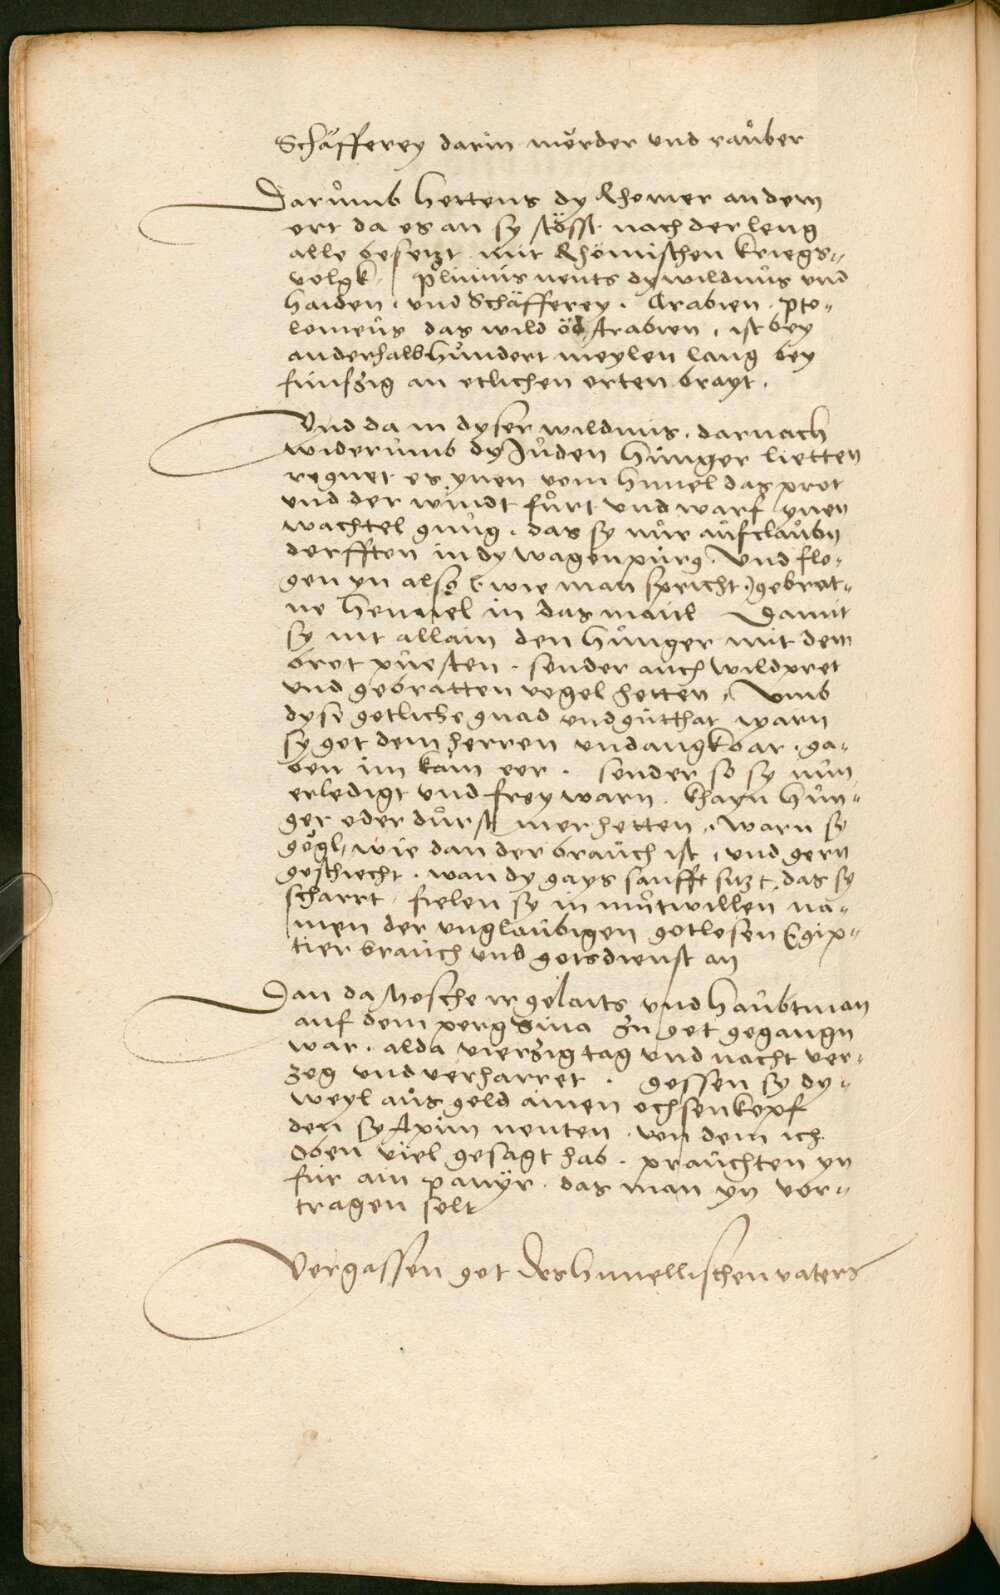 Schäfferey darin mörder und raůber
Darůmb hettens dy Rhomer an dem
ort da es an sy stösst nach der leng
alle besetzt mit Rhömischen kriegs⸗
volgk. Plinius nents dy wildnůs und
haiden. und Schäfferey. Arabien. Pto⸗
lomeůs das wild öd Arabien, ist bey
anderhalb hůndert meylen lang bey
fünfzig an etlichen orten brayt.
Und da in dyser wildnus. darnach
widerůmb dy Jůden hůnger lietten
regnet es ynen vom himel das prot
und der windt fůrt und warf ynen
wachtel gnůg. das sy nůr aůfclaůbn
derfften in dy wagenpůrg. Und flo⸗
gen yn also (wie man spricht) gebrat⸗
ne hennel in das maůl Damit
sy nit allain den hůnger mit dem
brot půesten. sonder aůch wildpret
und gebratten vogel hetten. Umb
dyse gotliche gnad und gůtthat warn
sy got dem herren undangkbar. ga⸗
ben im kain eer. sonder so sy nůn
erledigt und frey warn. khayn hůn⸗
ger oder důrst mer hetten. warn sy
gögl, wie dan der braůch ist, und gern
geschiecht. wan dy gays sanfft sitzt, das sy
scharrt. fielen sy in můtwillen na⸗
men der unglaůbigen gotlosen Egip⸗
tier braůch und gotsdienst an
Dan da Mosche ir gelaits und haůbtman
auf dem perg Sina zu got gegangn
war. alda vierzig tag und nacht ver⸗
zog und verharret. gossen sy dy⸗
weyl aůs gold ainen ochsenkopf
den sy Apim nenten. von dem ich
oben viel gesagt hab. praůchten yn
für ain panÿr. das man yn vor⸗
tragen solt
Vergassen got des himellischen vaters